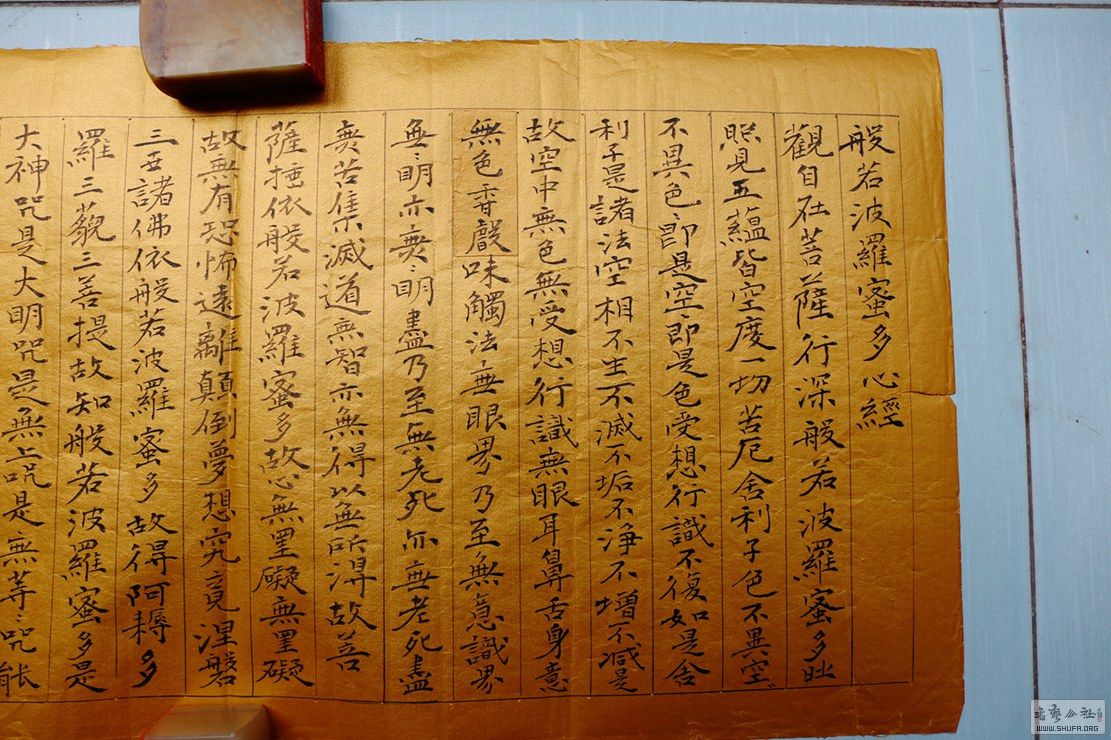 般若波羅蜜多心經
觀自在菩薩行深般若波羅蜜多時
照見五蘊皆空度一切苦厄舍利子色不異空〻
不異色〻即是空〻即是色受想行識不復如是舍
利子是諸法空相不生不滅不垢不淨不增不減是
故空中無色無受想行識無眼耳鼻舌身意
無色香聲味觸法無眼界乃至無意識界
無〻明亦無〻明盡乃至無老死亦無老死盡
無苦集滅道無智亦無得以無所得故菩
薩埵依般若波羅蜜多故心無罣礙無罣礙
故無有恐怖遠離顛倒夢想究竟涅槃
三世諸佛依般若波羅蜜多故得阿耨多
羅三藐三菩提故知般若波羅蜜多是
大神咒是大明咒是無上咒是無等〻咒能
書藝公社
WWW.SHUFA.ORG